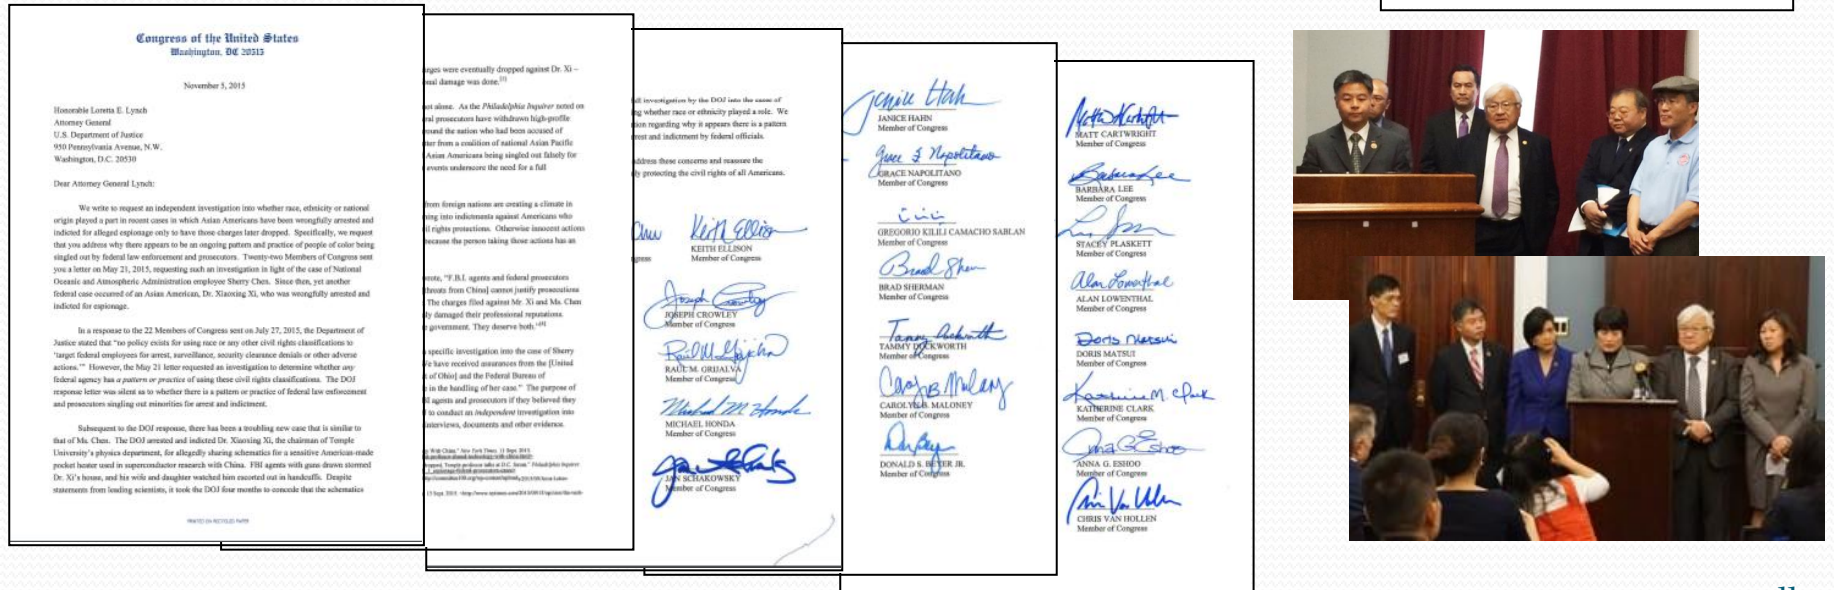 Congress of the United States
Washington, DC 20515
November 5, 2015
Honorable Loretta E. Lynch
Attorney General
U.S. Department of Justice
950 Pennsylvania Avenue, N.W.
Washington, D.C. 20530
Dear Attorney General Lynch:
We write to request an independent investigation into whether race, ethnicity or national
origin played a part in recent cases in which Asian Americans have been wrongfully arrested and
indicted for alleged espionage only to have those charges later dropped. Specifically, we request
that you address why there appears to be an ongoing pattern and practice of people of color being
singled out by federal law enforcement and prosecutors. Twenty-two Members of Congress sent
you a letter on May 21, 2015, requesting such an investigation in light of the case of National
Oceanic and Atmospheric Administration employee Sherry Chen. Since then, yet another
federal case occurred of an Asian American, Dr. Xiaoxing Xi, who was wrongfully arrested and
indicted for espionage.
In a response to the 22 Members of Congress sent on July 27, 2015, the Department of
Justice stated that "no policy exists for using race or any other civil rights classifications to
'target federal employees for arrest, surveillance, security clearance denials or other adverse
actions.'" However, the May 21 letter requested an investigation to determine whether any
federal agency has a pattern or practice of using these civil rights classifications. The DOJ
response letter was silent as to whether there is a pattern or practice of federal law enforcement
and prosecutors singling out minorities for arrest and indictment.
Subsequent to the DOJ response, there has been a troubling new case that is similar to
that of Ms. Chen. The DOJ arrested and indicted Dr. Xiaoxing Xi, the chairman of Temple
University's physics department, for allegedly sharing schematics for a sensitive American-made
pocket heater used in superconductor research with China. FBI agents with guns drawn stormed
Dr. Xi's house, and his wife and daughter watched him escorted out in handcuffs. Despite
statements from leading scientists, it took the DOJ four months to concede that the schematics
PRINTED ON RECYCLED PAPER
rges were eventually dropped against Dr. Xi –
onal damage was done.[1]
not alone. As the Philadelphia Inquirer noted on
ral prosecutors have withdrawn high-profile
round the nation who had been accused of
tter from a coalition of national Asian Pacific
Asian Americans being singled out falsely for
events underscore the need for a full
from foreign nations are creating a climate in
ning into indictments against Americans who
il rights protections. Otherwise innocent actions
because the person taking those actions has an
wrote, "F.B.I. agents and federal prosecutors
threats from China] cannot justify prosecutions
The charges filed against Mr. Xi and Ms. Chen
ly damaged their professional reputations.
government. They deserve both."
specific investigation into the case of Sherry
We have received assurances from the [United
of Ohio] and the Federal Bureau of
in the handling of her case." The purpose of
I agents and prosecutors if they believed they
to conduct an independent investigation into
interviews, documents and other evidence.
With China." New York Times. 11 Sept. 2015.
ull investigation by the DOJ into the cause of
ng whether race or ethnicity played a role. We
tion regarding why it appears there is a pattern
rest and indictment by federal officials.
address these concerns and reassure the
ly protecting the civil rights of all Americans.
Chu
gress
Keith Ellison
KEITH ELLISON
Member of Congress
Joseph Crowley
JOSEPH CROWLEY
Member of Congress
RAUL M. GRIJALVA
Member of Congress
Michael M Honda
MICHAEL HONDA
Member of Congress
JAN SCHAKOWSKY
Member of Congress
Janice Hahn
JANICE HAHN
Member of Congress
Grace F Napolitano
GRACE NAPOLITANO
Member of Congress
GREGORIO KILILI CAMACHO SABLAN
Member of Congress
Brad Sherman
BRAD SHERMAN
Member of Congress
Tammy Duckworth
TAMMY DUCKWORTH
Member of Congress
CAROLYN B. MALONEY
Member of Congress
Don Beyer
DONALD S. BEYER JR.
Member of Congress
Matt Cartwright
MATT CARTWRIGHT
Member of Congress
Barbara Lee
BARBARA LEE
Member of Congress
STACEY PLASKETT
Member of Congress
Alan Lowenthal
ALAN LOWENTHAL
Member of Congress
Doris Matsui
DORIS MATSUI
Member of Congress
Katherine M. Clark
KATHERINE CLARK
Member of Congress
Anna G. Eshoo
ANNA G. ESHOO
Member of Congress
Chris Van Hollen
CHRIS VAN HOLLEN
Member of Congress